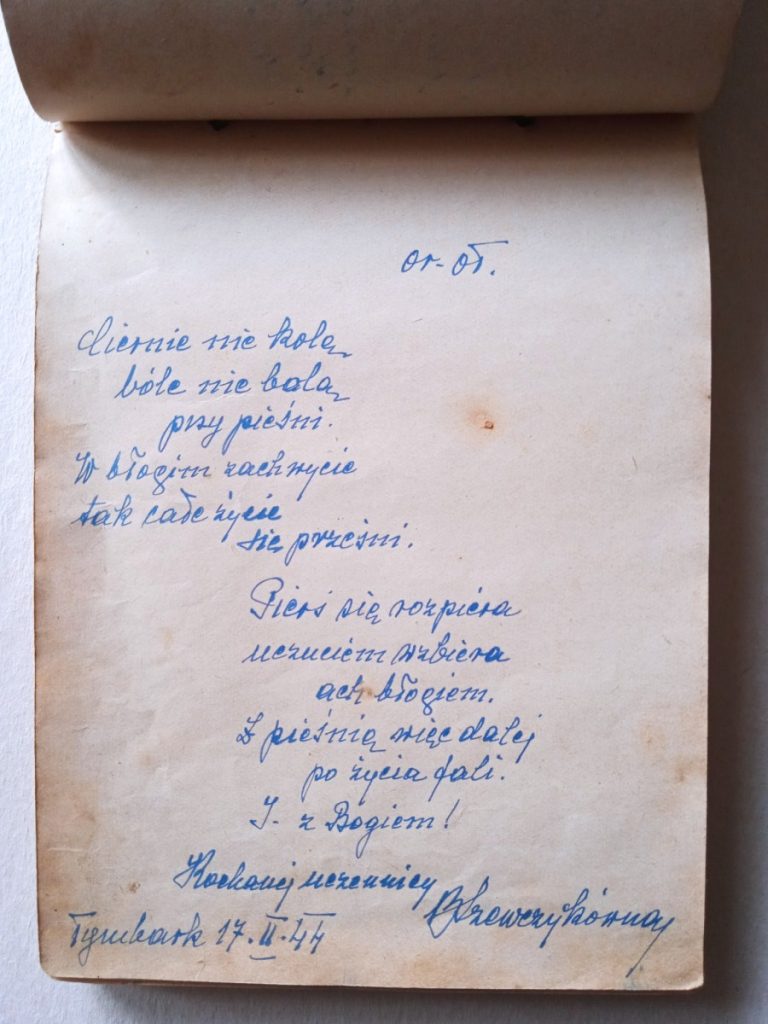 Or-Ot.
Ciernie nie kolą
bóle nie bolą
przy pieśni.
W błogim zachwycie
tak całe życie
się prześni.
Pierś się rozpiera
uczuciem wzbiera
ach błogiem.
Z pieśnią więc dalej
po życia fali.
I- z Bogiem!
Kochanej uczennicy
BSzewczykówna
Tymbark 17.II.44